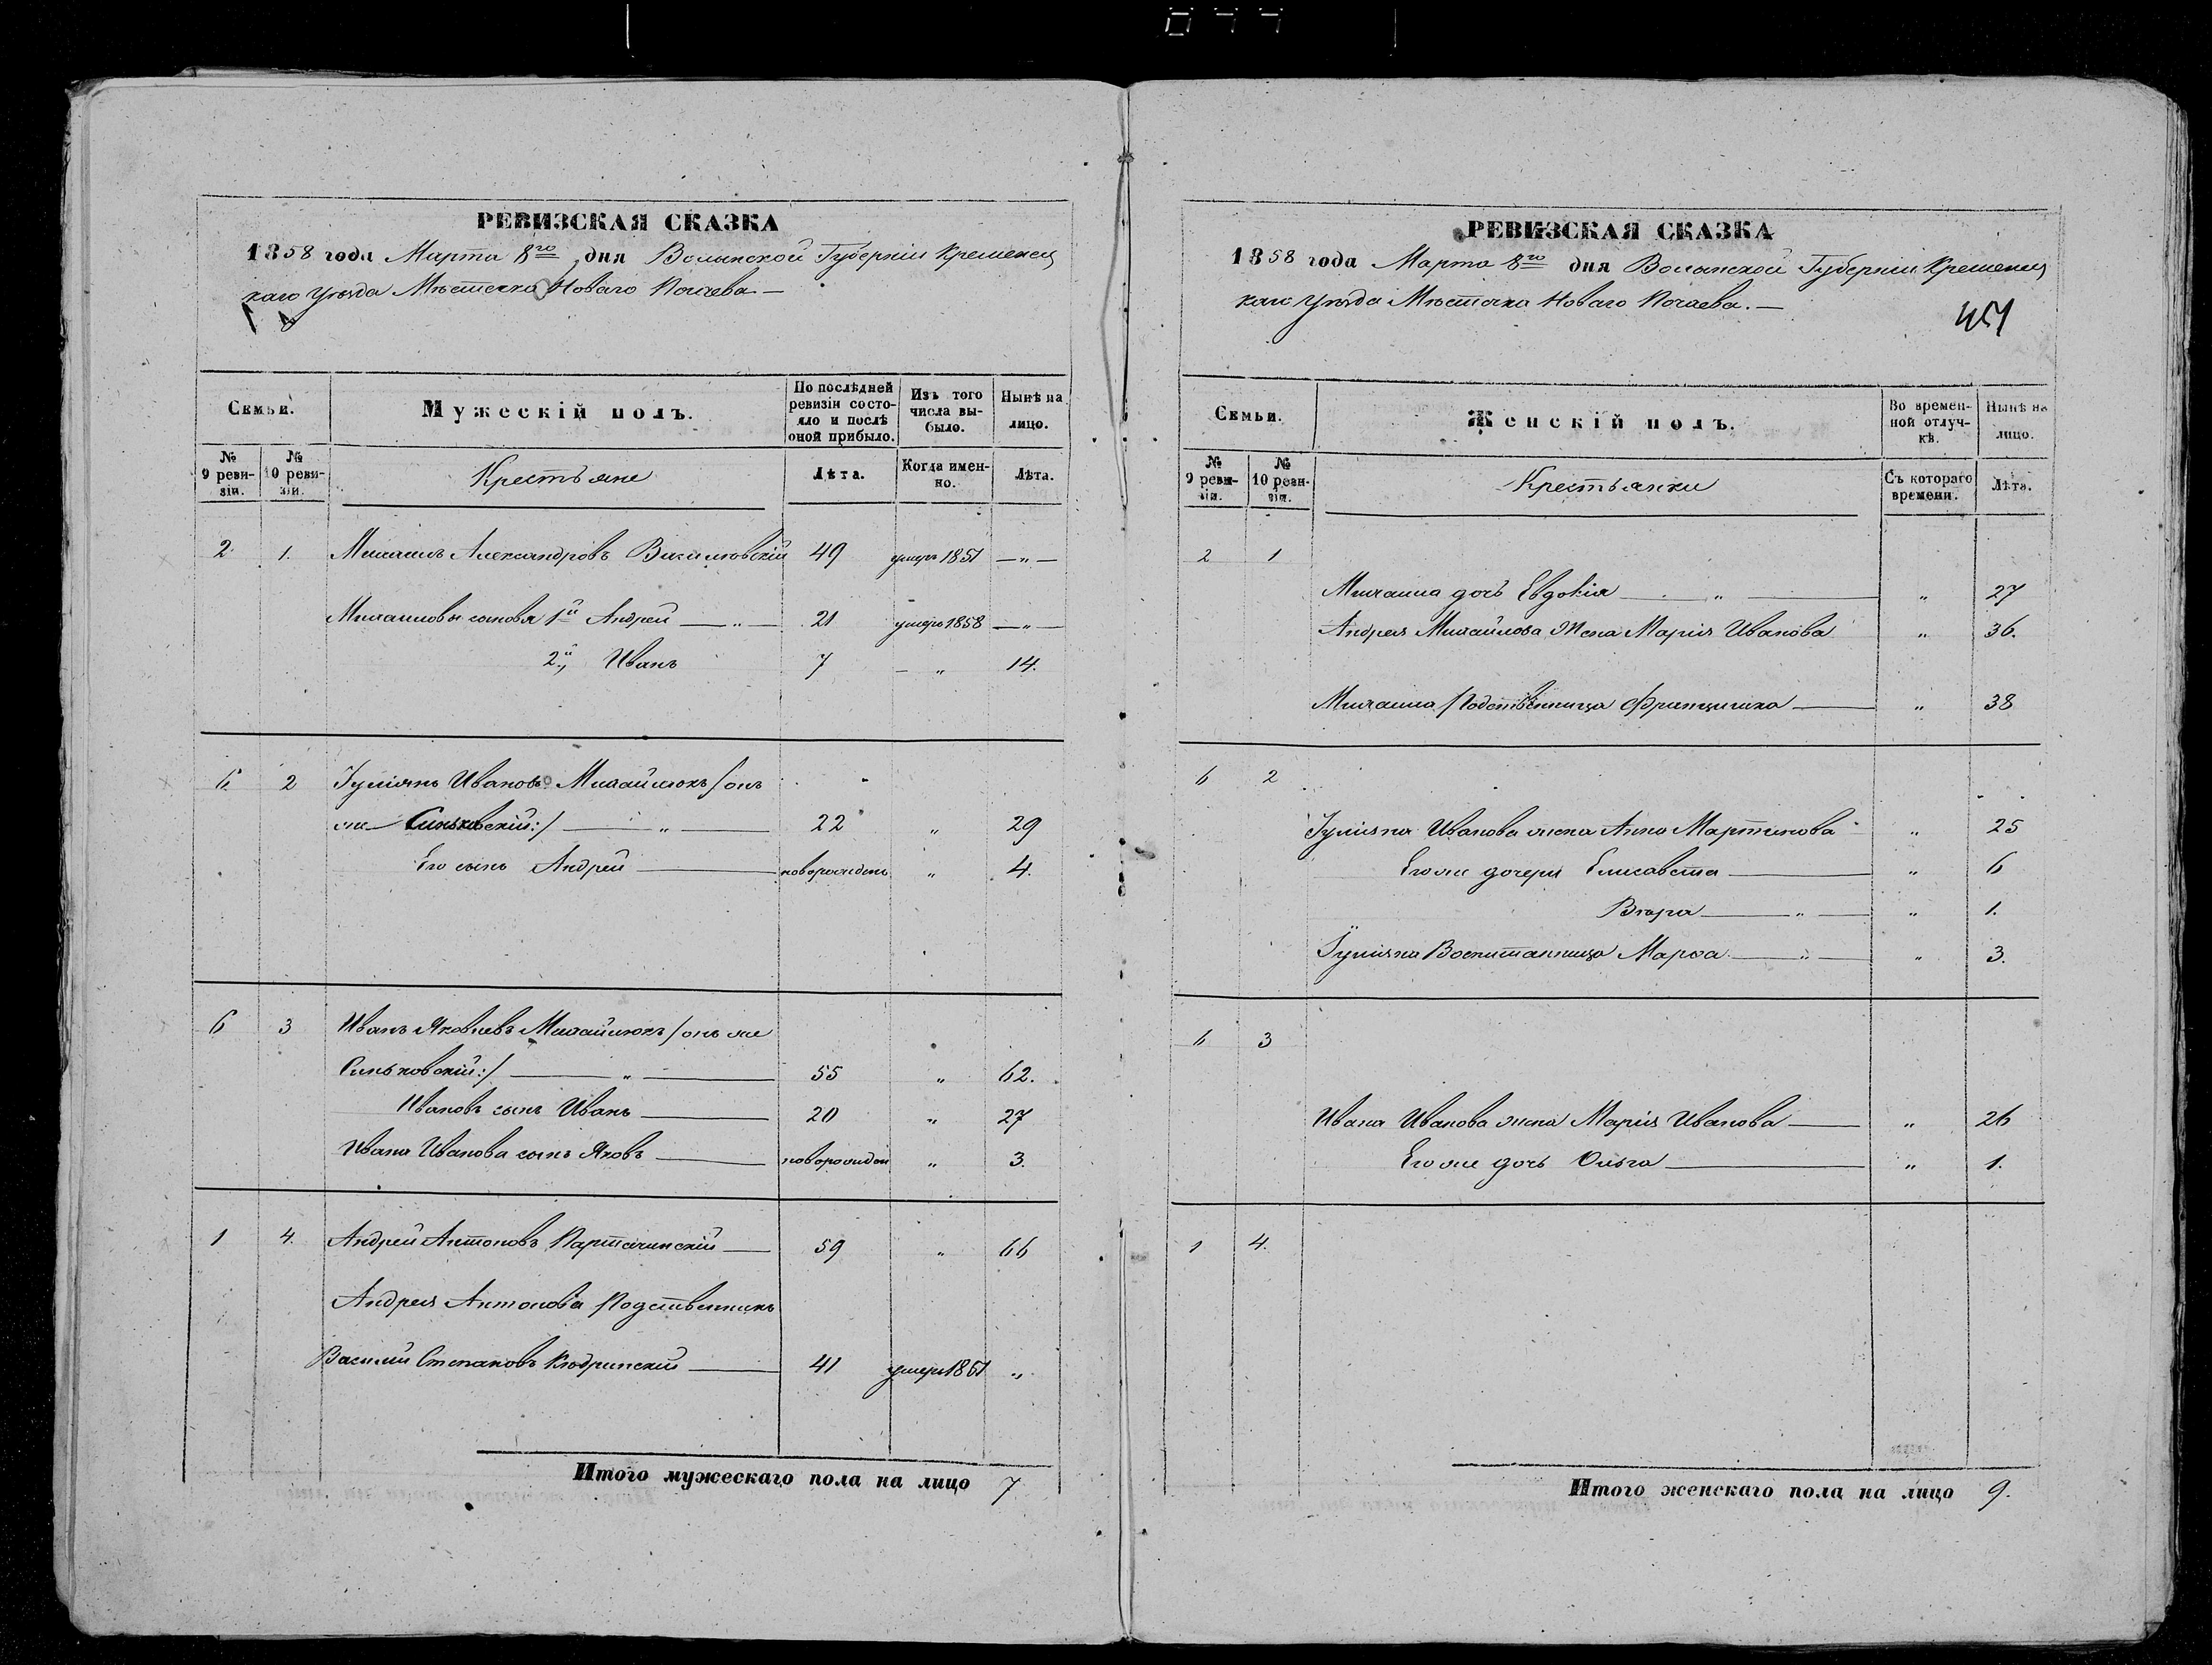 РЕВИЗСКАЯ СКАЗКА
1858 года Марта 8го дня Волынской Губернiи Кременец
каго Уезда Мѣстечка Новаго Почаева —
Семьи.
Мужескiй полъ.
По послѣдней ревизiи состояло и послѣ оной прибыло.
Изъ того числа выбыло.
Нынѣ на лицо.
№ 9 ревизiи.
№ 10 ревизiи.
Крестьяне
Лѣта.
Когда именно.
Лѣта.
2 1. Михаилъ Александровъ 49 умеръ 1851 — " —
Михаиловы сыновья 1й Андрей — " — 21 умеръ 1858 — " —
2й, Иванъ 7 — " 14.
6 2 Iулiянъ Ивановъ Михайлюкъ /онъ
же Синьковскiй:/ — " — 22 " 29
Его сынъ Андрей — новорожденъ " 4.
6 3 Иванъ Яковлевъ Михайлюкъ /онъ же
Синьковскiй:/ — " — 55 " 62.
Ивановъ сынъ Иванъ — 20 " 27
Ивана Иванова сынъ Яковъ — новорожден " 3.
1 4. Андрей Антоновъ — 59 " 66
Андрея Антонова Родственникъ
Василий Степановъ — 41 умеръ 1851 "
Итого мужескаго пола на лицо 7
РЕВИЗСКАЯ СКАЗКА
1858 года Марта 8го дня Волынской Губернiи Кременец
каго Уезда Мѣстечка Новаго Почаева. —
451
Семьи.
Женскiй полъ.
Во временной отлучкѣ.
Нынѣ на лицо.
№ 9 ревизiи.
№ 10 ревизiи.
Крестьянки
Съ котораго времени.
Лѣта.
2 1
Михаила дочь Евдокiя — " — " 27
Андрея Михайлова Жена Марiя Иванова " 36.
Михаила Родственница Францишка — " 38
6 2
Iулiяна Иванова жена Анна Мартинова " 25
Его же дочери Елисавета — " 6
Вѣра — " — " 1.
Iулiяна Воспитанница Марѳа — " — " 3.
6 3
Ивана Иванова жена Марiя Иванова — " 26
Его же дочь Ольга — " 1.
1 4.
Итого женскаго пола на лицо 9.